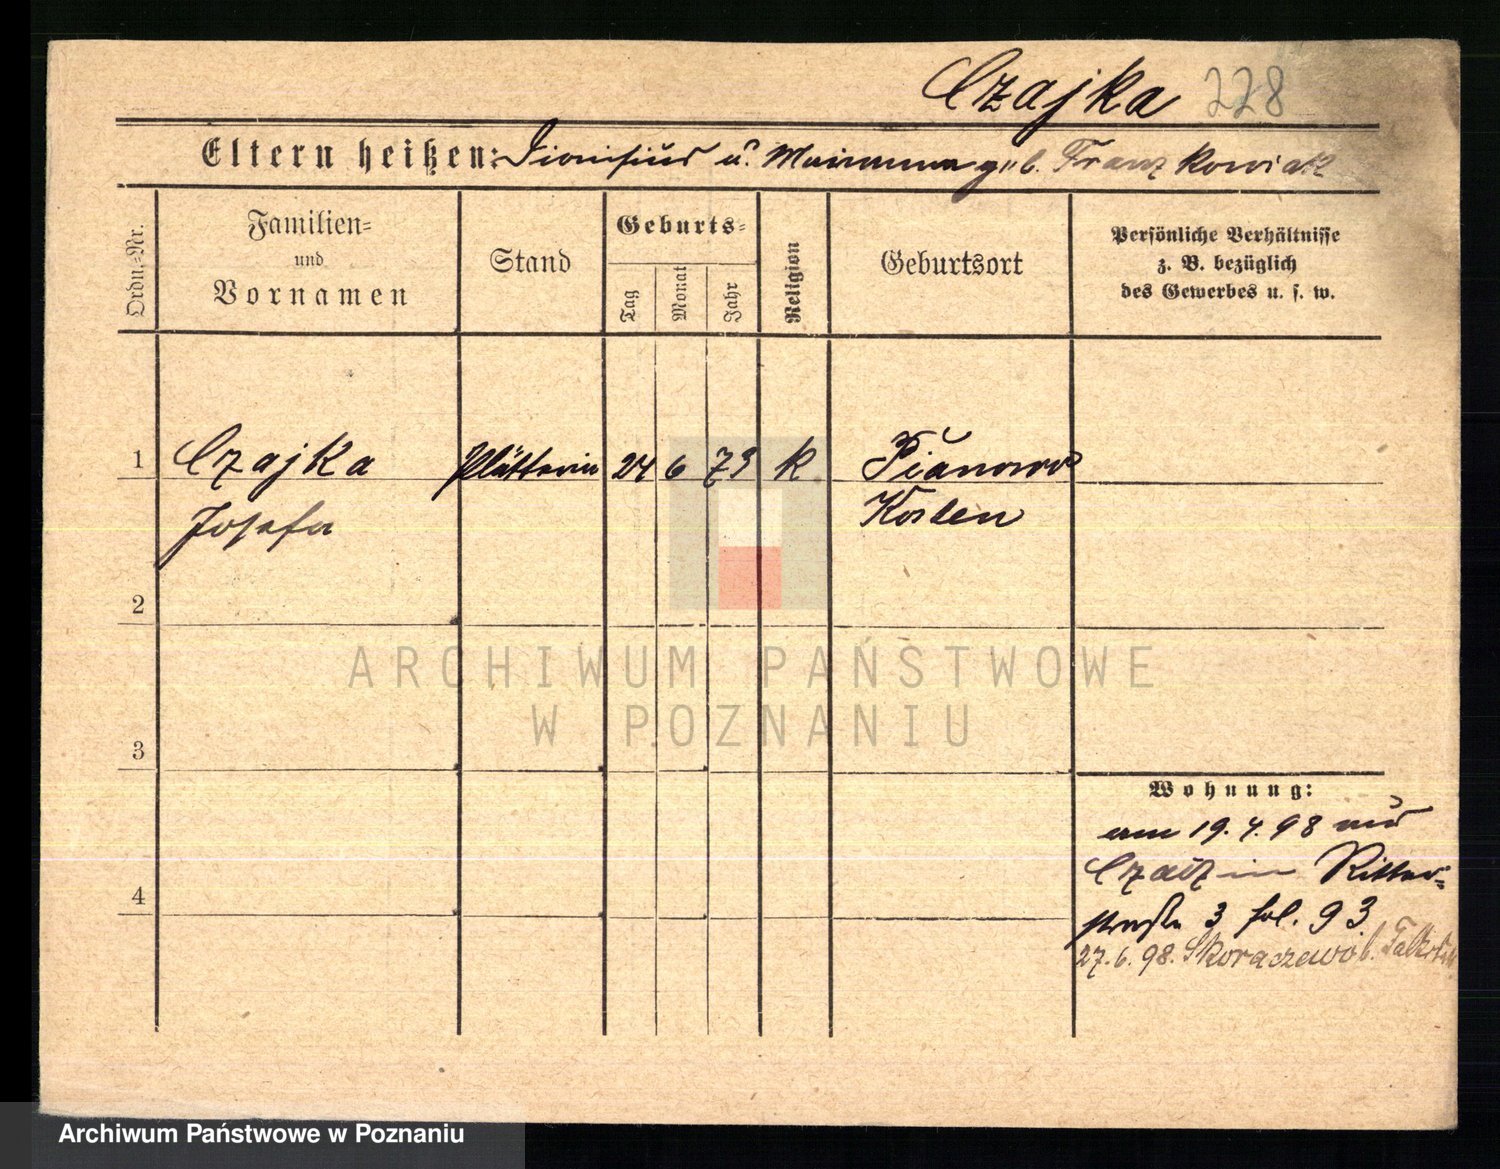 Czajka 228
Eltern heißen: Dionisius u. Marianna geb. Franzkowiak
Ordn.-Nr.
Familien-
und
Vornamen
Stand
Geburts-
Tag
Monat
Jahr
Religion
Geburtsort
Persönliche Verhältnisse
z. B. bezüglich
des Gewerbes u. s. w.
1 Czajka Plätterin 24 6 73 k Pianowo
Josefa Kosten
2
ARCHIWUM PAŃSTWOWE
W POZNANIU
3
Wohnung:
am 19.4.98 aus
Czacz in Ritter-
4
straße 3 fol. 93
27.6.98. Skoraczewo b.
Archiwum Państwowe w Poznaniu